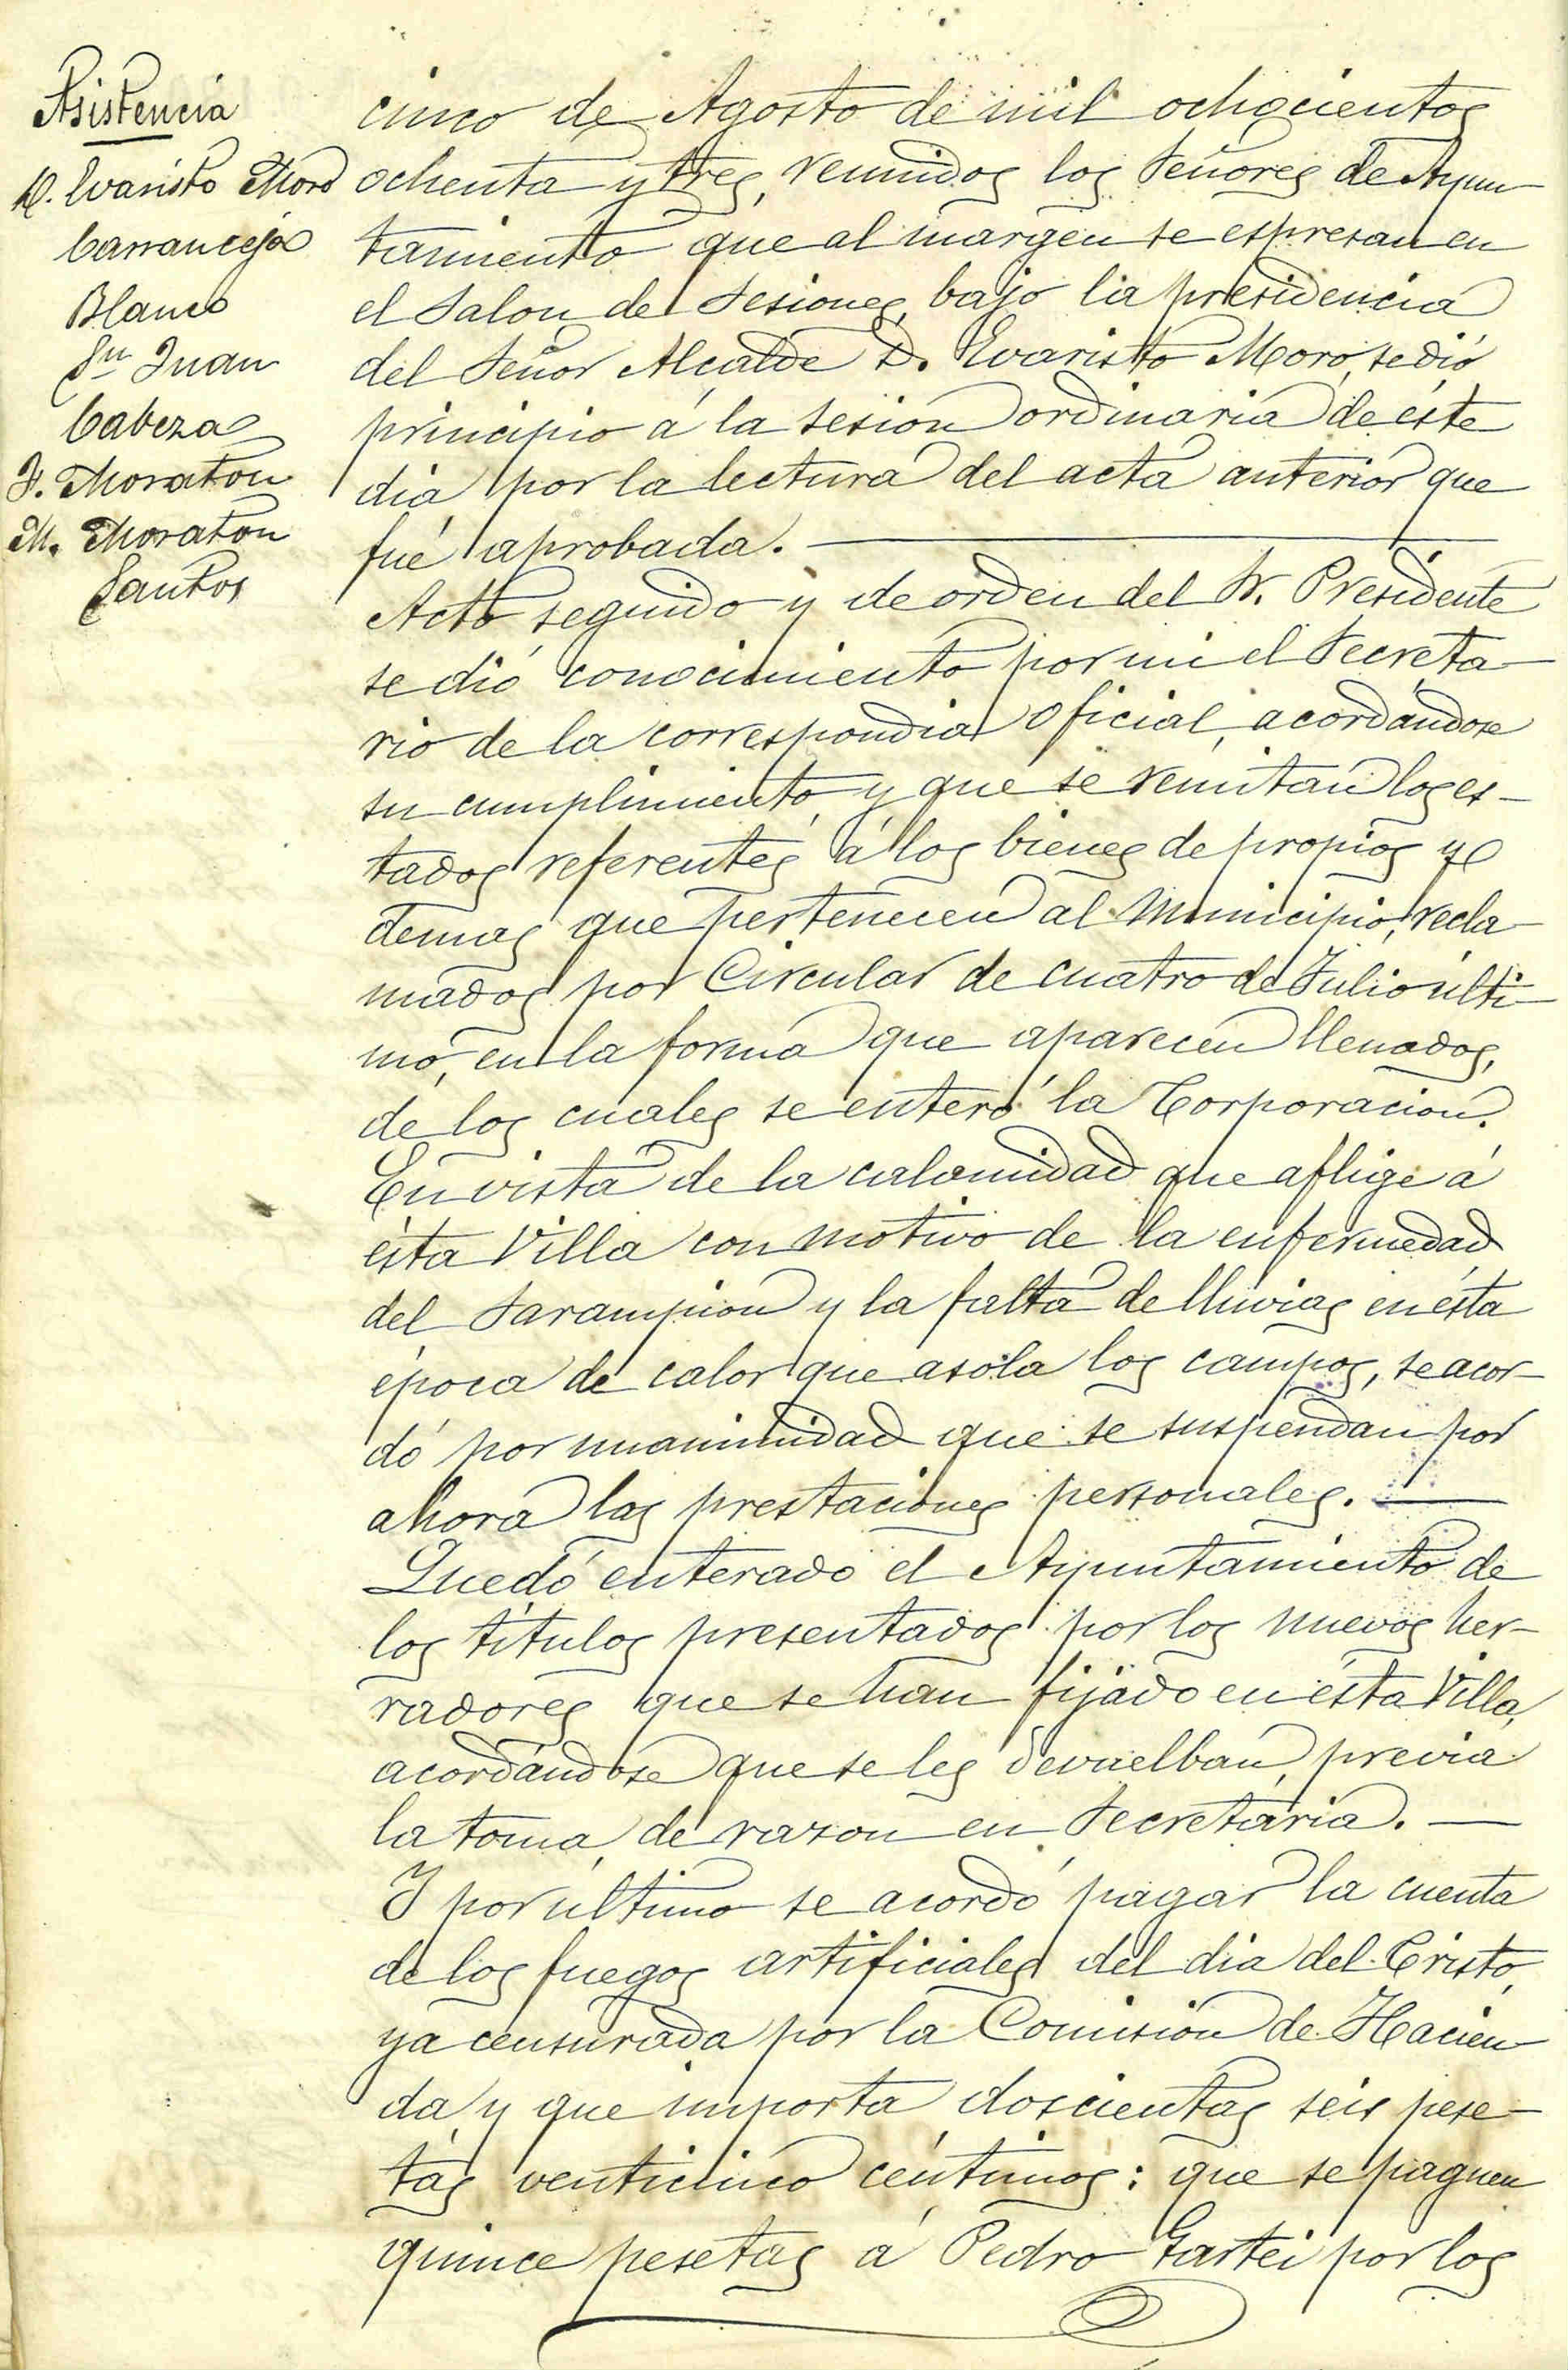 Asistencia
D. Evaristo Moro
Carranceja
Blanco
Sn Juan
Cabeza
F. Moraton
M. Moraton
Santos
cinco de Agosto de mil ochocientos
ochenta y tres, reunidos los Señores de Ayun-
tamiento que al margen se espresan en
el Salon de Sesiones, bajo la presidencia
del Señor Alcalde D. Evaristo Moro, se dió
principio á la sesion ordinaria de éste
dia por la lectura del acta anterior que
fué aprobada.
Acto seguido y de orden del Sr. Presidente
se dió conocimiento por mi el Secreta-
rio de la correspondia oficial, acordándose
su cumplimiento, y que se remitan los es-
tados referentes á los bienes de propios y
demas que pertenecen al Municipio, recla-
mados por Circular de cuatro de Julio últi-
mo, en la forma que aparecen llenados,
de los cuales se enteró la Corporacion.
En vista de la calamidad que aflige á
ésta Villa con motivo de la enfermedad
del Sarampion y la falta de lluvias en ésta
época de calor que asola los campos, se acor-
dó por unanimidad que se suspendan por
ahora las prestaciones personales.
Quedó enterado el Ayuntamiento de
los titulos presentados por los nuevos her-
radores que se han fijado en ésta Villa,
acordándose que se les devuelban, previa
la toma de razon en Secretaria.
Y por ultimo se acordó pagar la cuenta
de los fuegos artificiales del dia del Cristo,
ya censurada por la Comision de Hacien-
da y que importa doscientas seis pese-
tas venticinco céntimos: que se paguen
quince pesetas á Pedro por los